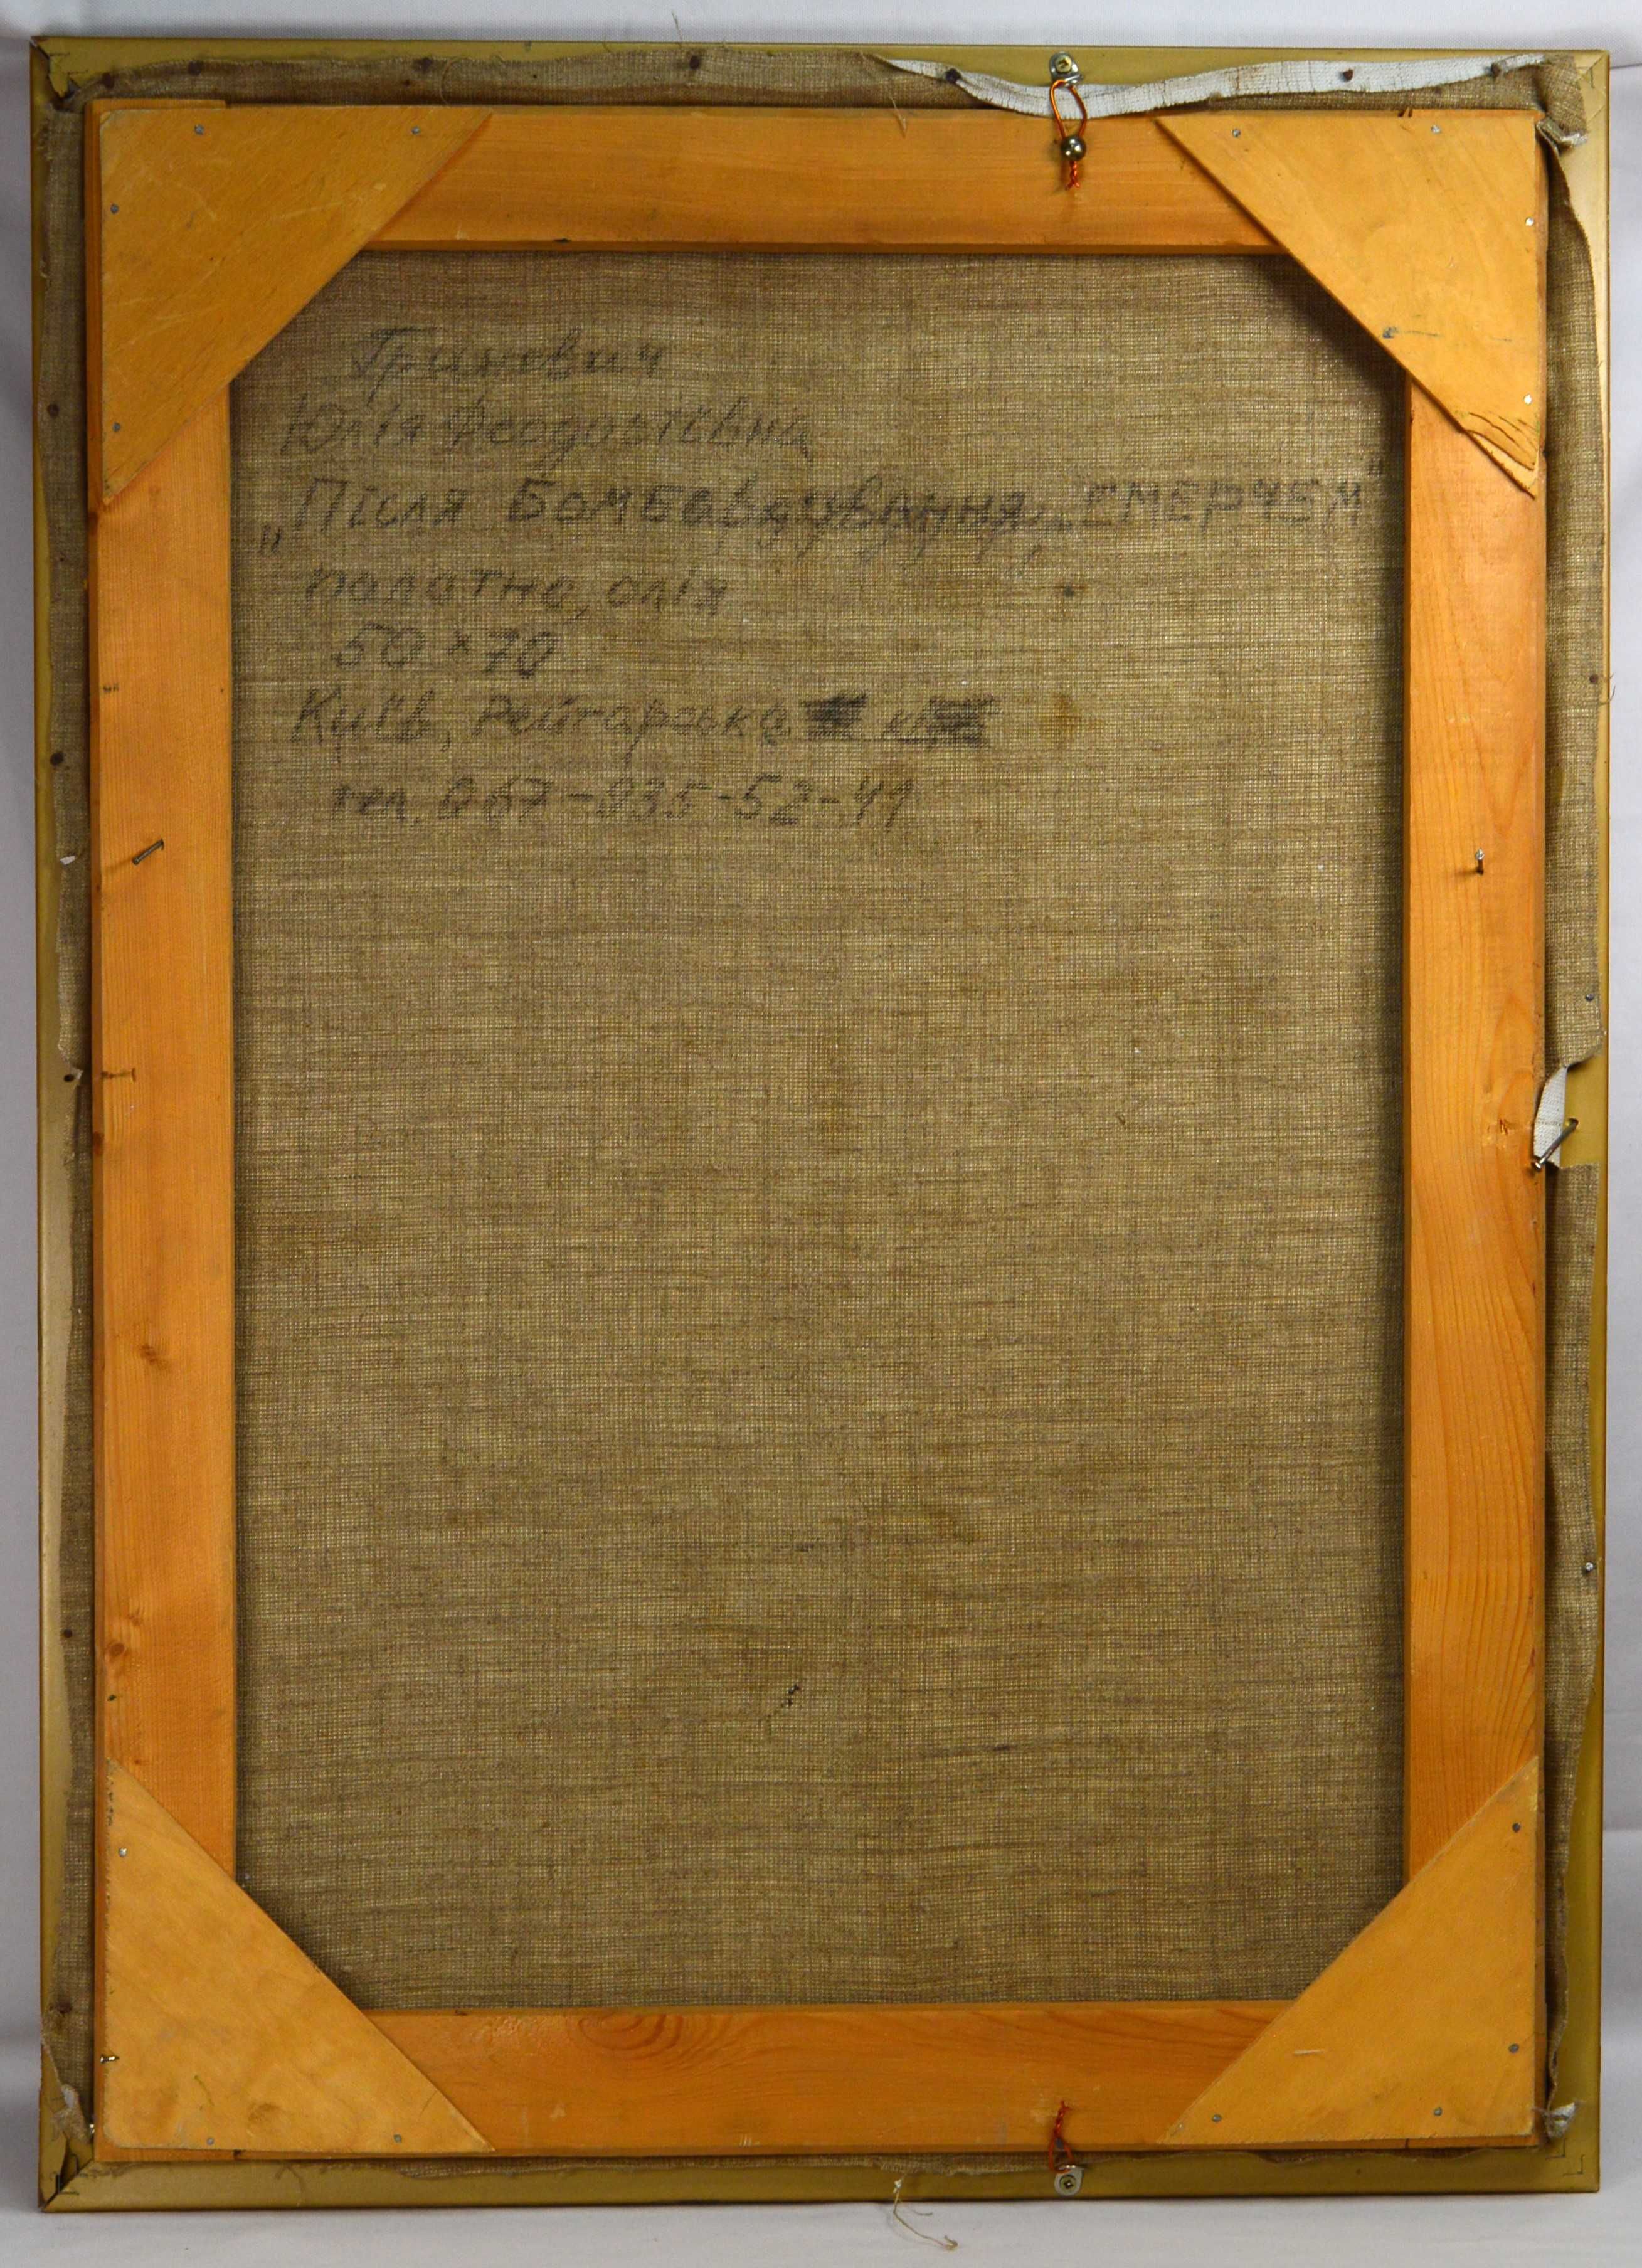 Гриневич
Юлія Феодосіївна
„Після Бомбардування „СМЕРЧЕМ"
полотно, олія
50 × 70
Київ, Рейтарська кв.
тел. 067-935-52-41